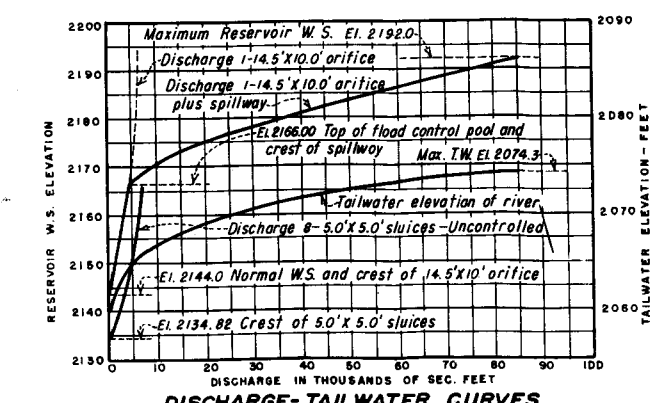 2200
2190
2180
2170
2160
2150
2140
2130
RESERVOIR W.S. ELEVATION
Maximum Reservoir W. S. El. 2192.0
Discharge 1-14.5'X10.0' orifice
Discharge 1-14.5'X10.0' orifice
plus spillway
El. 2166.00 Top of flood control pool and
crest of spillway
Max. T.W. El. 2074.3
Tailwater elevation of river
Discharge 8-5.0'X 5.0' sluices-Uncontrolled
El. 2144.0 Normal W.S. and crest of 14.5'X10' orifice
El. 2134.82 Crest of 5.0'X 5.0' sluices
2090
2080
2070
2060
TAILWATER ELEVATION-FEET
0 10 20 30 40 50 60 70 80 90 100
DISCHARGE IN THOUSANDS OF SEC. FEET
DISCHARGE-TAILWATER CURVES